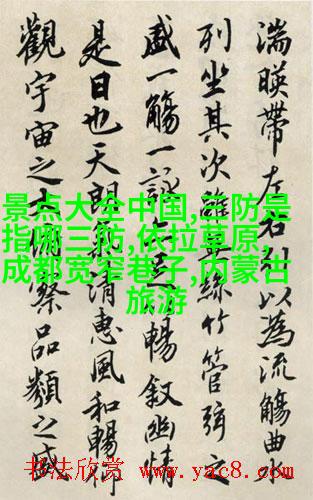 湍暎帶左右引以為流觴曲水
列坐其次雖無絲竹管弦之
盛一觴一詠足暢敘幽情
是日也天朗氣清惠風和暢仰
觀宇宙之大俯察品類之盛
景点大全中国,三防是
指哪三防,依拉草原,
成都宽窄巷子,内蒙古
旅游
书法欣赏 www.yac8.com